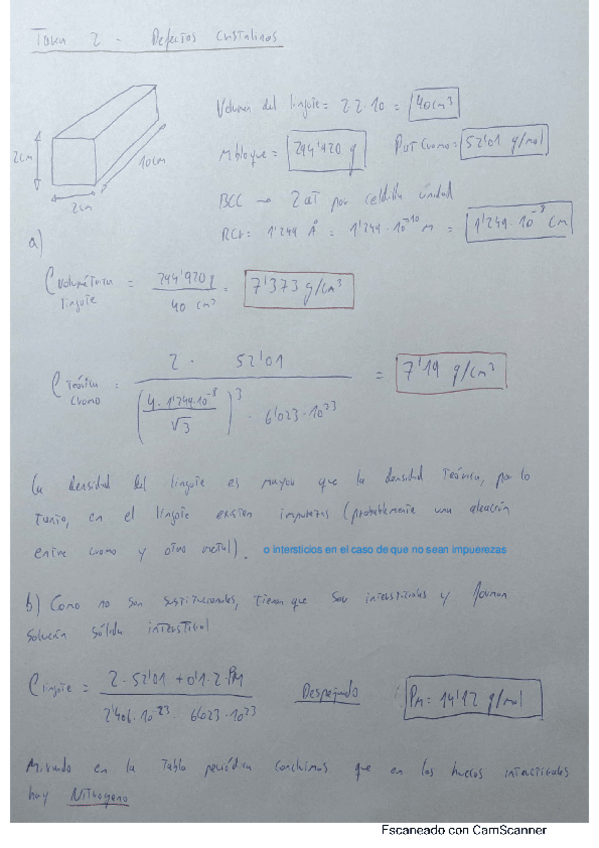 Tarea 2 - Defectos cristalinos
Volumen del lingote = 2·2·10 = 40cm³
2cm
10cm
2cm
Mbloque = 294'920 g
Pat Cromo = 52'01 g/mol
BCC → 2at por celdilla unidad
RCr = 1'249 Å = 1'249·10⁻¹⁰ m = 1'249·10⁻⁸ cm
a)
ρ volumétrica lingote = 294'920 g / 40 cm³ = 7'373 g/cm³
ρ Teórica cromo = 2 · 52'01 / (4·1'249·10⁻⁸ / √3)³ · 6'023·10²³ = 7'19 g/cm³
La densidad del lingote es mayor que la densidad teórica, por lo
tanto, en el lingote existen impurezas (probablemente una aleación
entre cromo y otro metal). o intersticios en el caso de que no sean impuerezas
b) Como no son sustitucionales, tienen que ser intersticiales y forman
solución sólida intersticial
ρ lingote = 2·52'01 + 0'1·2·PM / 2'406·10⁻²³ · 6'023·10²³ Despejando : PM = 14'12 g/mol
Mirando en la Tabla periódica concluimos que en los huecos intersticiales
hay Nitrógeno
Escaneado con CamScanner